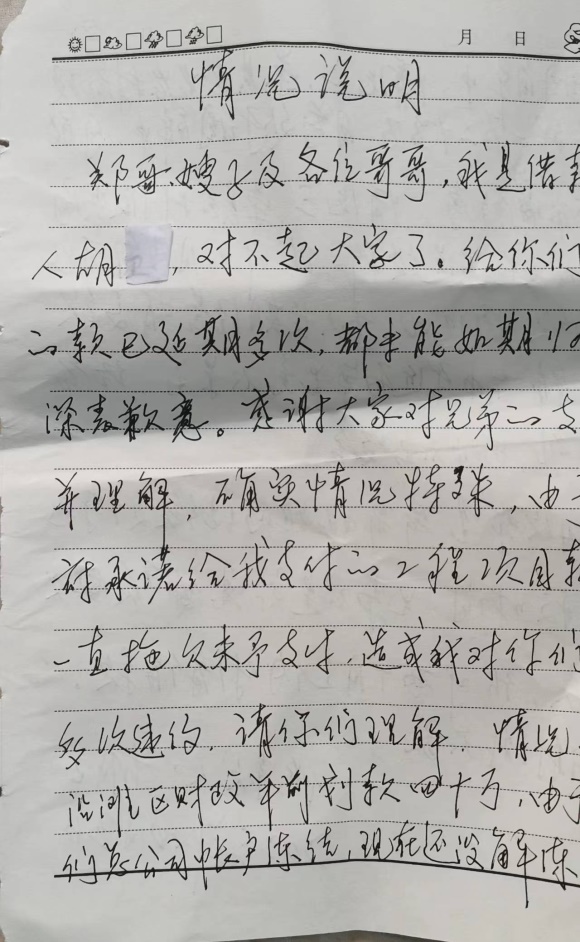 月 日
情况说明
郑哥、嫂子及各位哥哥，我是借款
人胡，对不起大家了。给你们
的款已延期多次，都未能如期归
深表歉意。感谢大家对兄弟的支
并理解，确实情况特殊，由于
承诺给我支付的工程项目款
一直拖欠未予支付，造成我对你们
多次违约，请你们理解，情况
沿滩区财政年前划款四十万，由于
们总公司帐户冻结，现在还没解冻